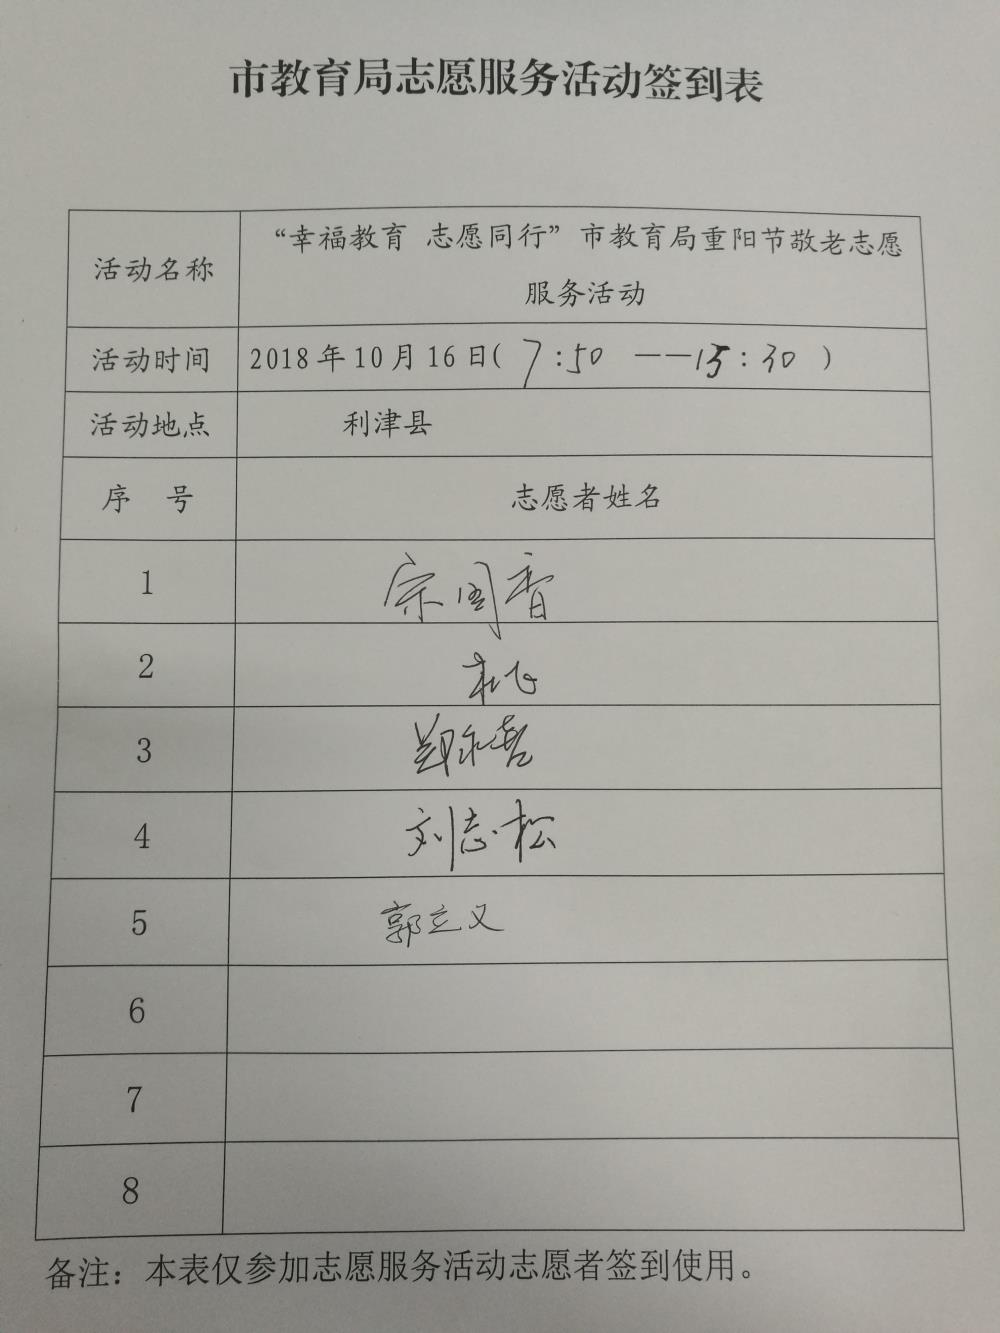 市教育局志愿服务活动签到表
活动名称
“幸福教育 志愿同行”市教育局重阳节敬老志愿
服务活动
活动时间 2018年10月16日( 7:50 ——15:30 )
活动地点 利津县
序 号 志愿者姓名
1 宗国香
2 杜飞
3 郑永喜
4 刘志松
5 郭立义
6
7
8
备注：本表仅参加志愿服务活动志愿者签到使用。